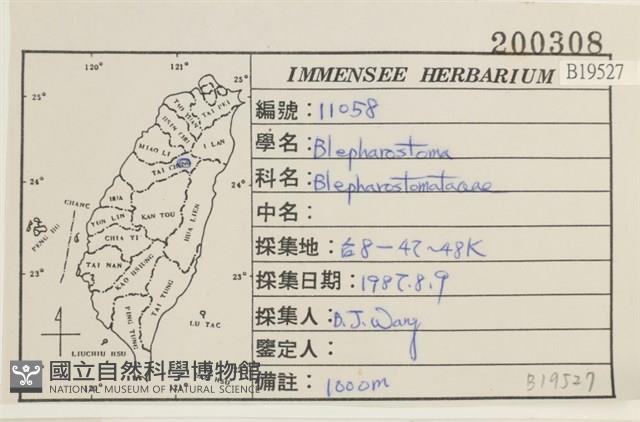 200308
IMMENSEE HERBARIUM
B19527
編號：11058
學名：Blepharostoma
科名：Blepharostomataceae
中名：
採集地：台8－47～48K
採集日期：1987.8.9
採集人：B.J.Wang
鑒定人：
備註：1000m
B19527
120° 121°
25° 25°
TAI PEI
I LAN
MIAO LI
TAI CHUNG
24° 24°
CHANG HUA
YUN LIN
KAN TOU
HUA LIEN
PENG HU
CHIA YI
23° 23°
TAI NAN
KAO HSIUNG
TAI TUNG
PING TUNG
LU TAC
LIUCHIU HSU
120° 121°
HSU
國立自然科學博物館
NATIONAL MUSEUM OF NATURAL SCIENCE